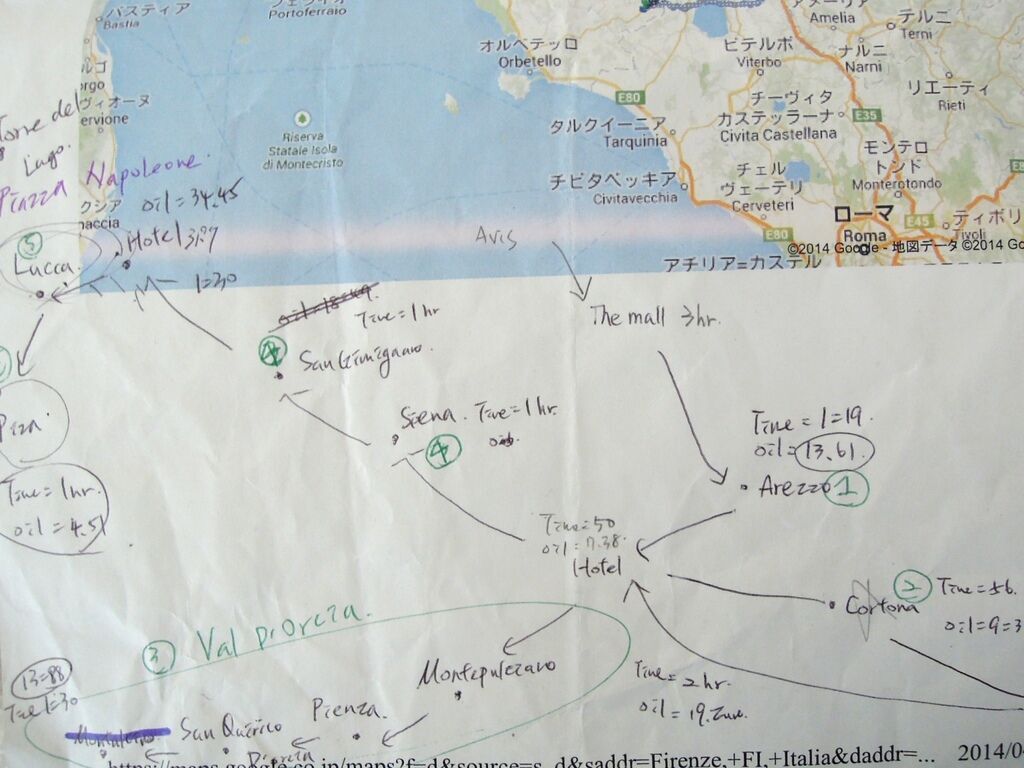 バスティア
Bastia
Portoferraio
アメーリア
Amelia
テルニ
Terni
オルベテッロ
Orbetello
ビテルボ
Viterbo
ナルニ
Narni
リエーティ
Rieti
E80
チーヴィタ
カステッラーナ
Civita Castellana
E35
タルクイーニア
Tarquinia
モンテロ
トンド
Monterotondo
チェル
ヴェーテリ
Cerveteri
チビタベッキア
Civitavecchia
Riserva
Statale Isola
di Montecristo
ローマ
Roma
E45
ティボリ
Tivoli
E80
©2014 Google - 地図データ ©2014 Go
アチリア=カステル
Torre del
Lago.
Piazza Napoleone.
oil=34.45
Hotel
1=30
5
Lucca.
Avis
The mall 3hr.
Time = 1hr
4
San Gimignano.
Siena. Time = 1hr.
4
Time = 1=19.
oil=13.61.
Arezzo 1
Piza
Time = 1hr.
oil = 4.51
Time=50
oil=7.38.
Hotel
2
Cortona
Time = 56.
oil=9=3
3 Val Diorcia.
Montepulciano
Pienza.
San Quirico
13=88
Time 1=30
Time = 2hr.
https://maps.google.co.jp/maps?f=d&source=s_d&saddr=Firenze,+FI,+Italia&daddr=... 2014/0